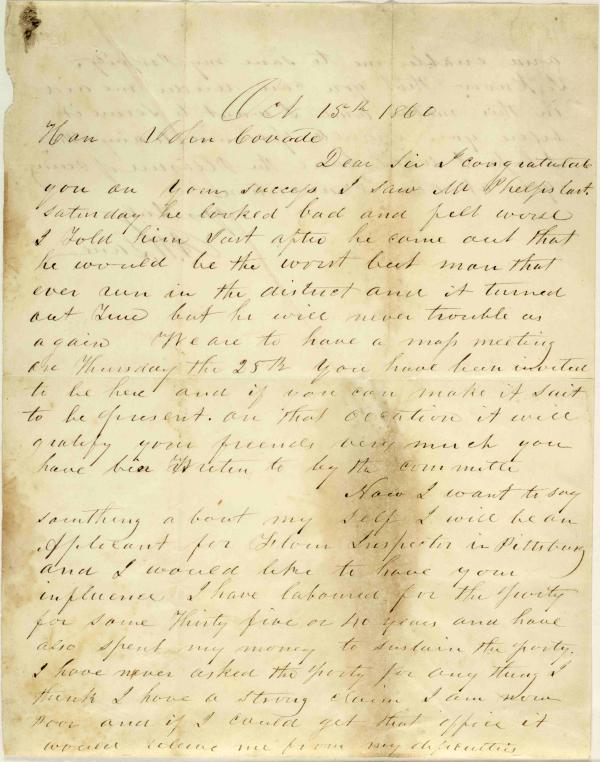 Oct 15th 1860
Hon John Covode
Dear Sir I congratulate
you on your success I saw Mr Phelps last
saturday he looked bad and felt worse
I Told him Just after he came out that
he would be the worst beat man that
ever run in the district and it turned
out True but he will never trouble us
again We are to have a mass meeting
on Thursday the 25th you have been invited
to be here and if you can make it suit
to be present. on that occation it will
gratify your friends very much you
have bien Writen to by the committe
Now I want to say
somthing about my self I will be an
Applicant for Flour Inspector in Pittsburg
and I would like to have your
influence I have laboured for the party
for some Thirty five or 40 years and have
also spent my money to sustain the party.
I have never asked the party for any thing I
think I have a strong claim I am now
Poor and if I could get that office it
would releave me from my dificulties